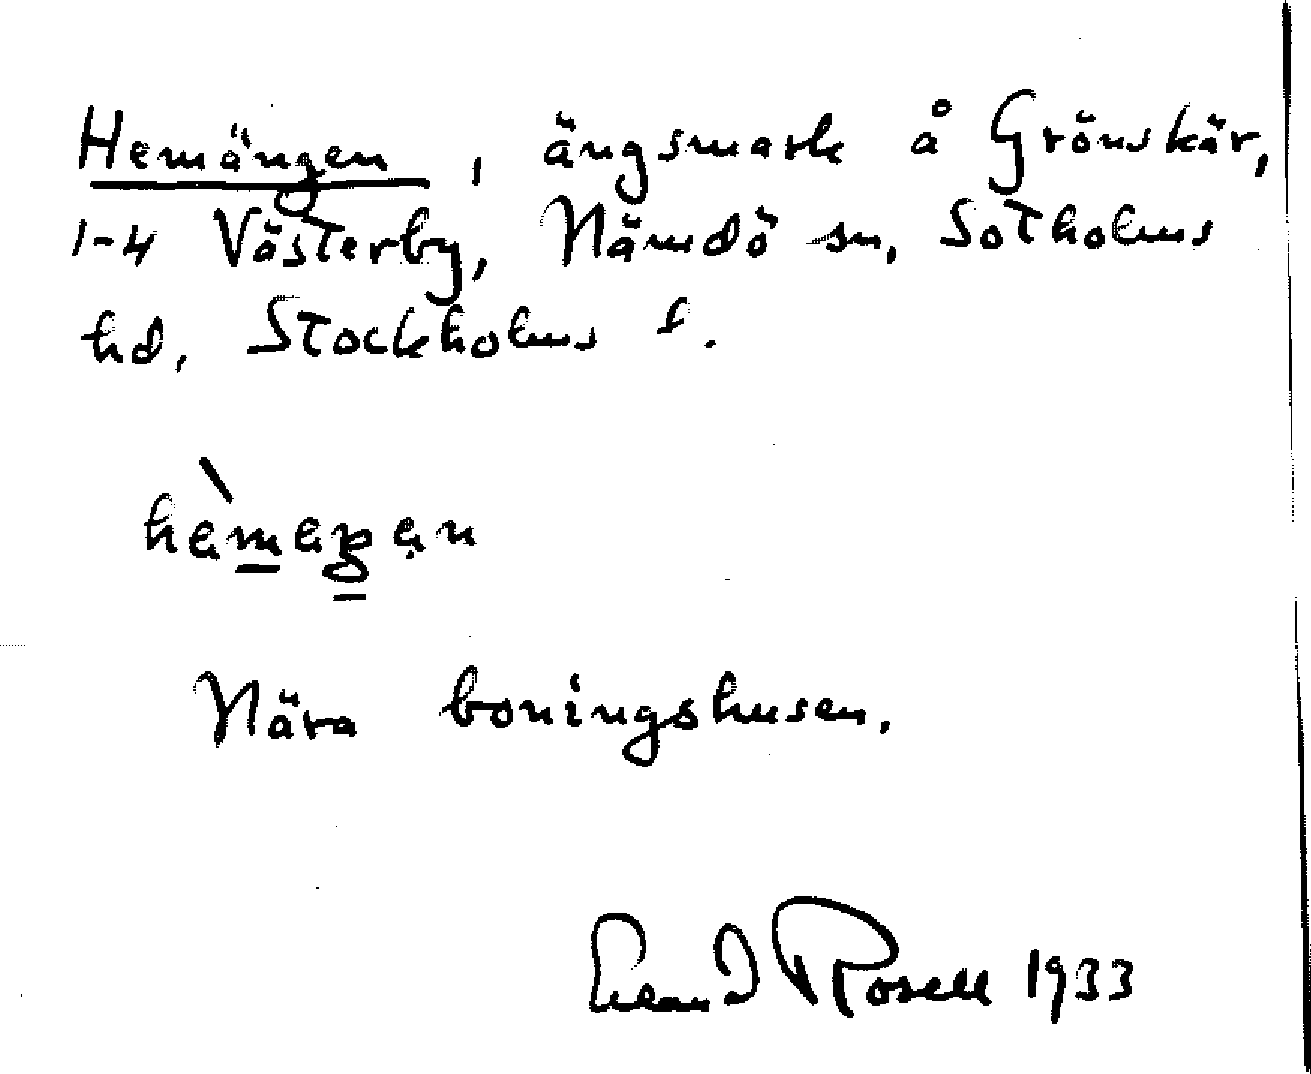 Hemängen, ängsmark å Grönskär,
1-4 Västerby, Nämdö sn, Sotholms
hd, Stockholms l.
Nära boningshusen.
Rosell 1933